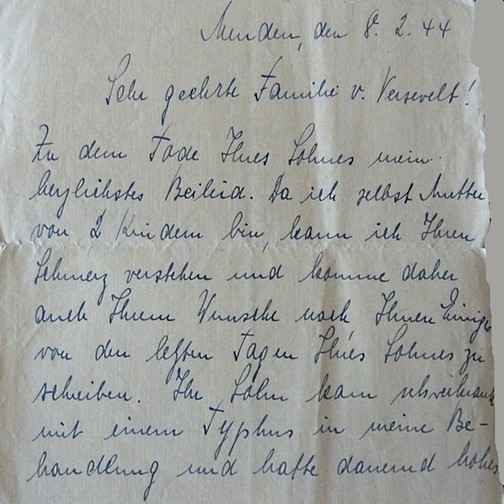 Menden, den 8. 2. 44
Sehr geehrte Familie v. Versevelt!
Zu dem Tode Ihres Sohnes mein
herzlichstes Beileid. Da ich selbst Mutter
von 2 Kindern bin, kann ich Ihren
Schmerz verstehen und komme daher
auch Ihrem Wunsche nach Ihnen Einiges
von den letzten Tagen Ihres Sohnes zu
schreiben. Ihr Sohn kam schwerkrank
mit einem Typhus in meine Be-
handlung und hatte dauernd hohes